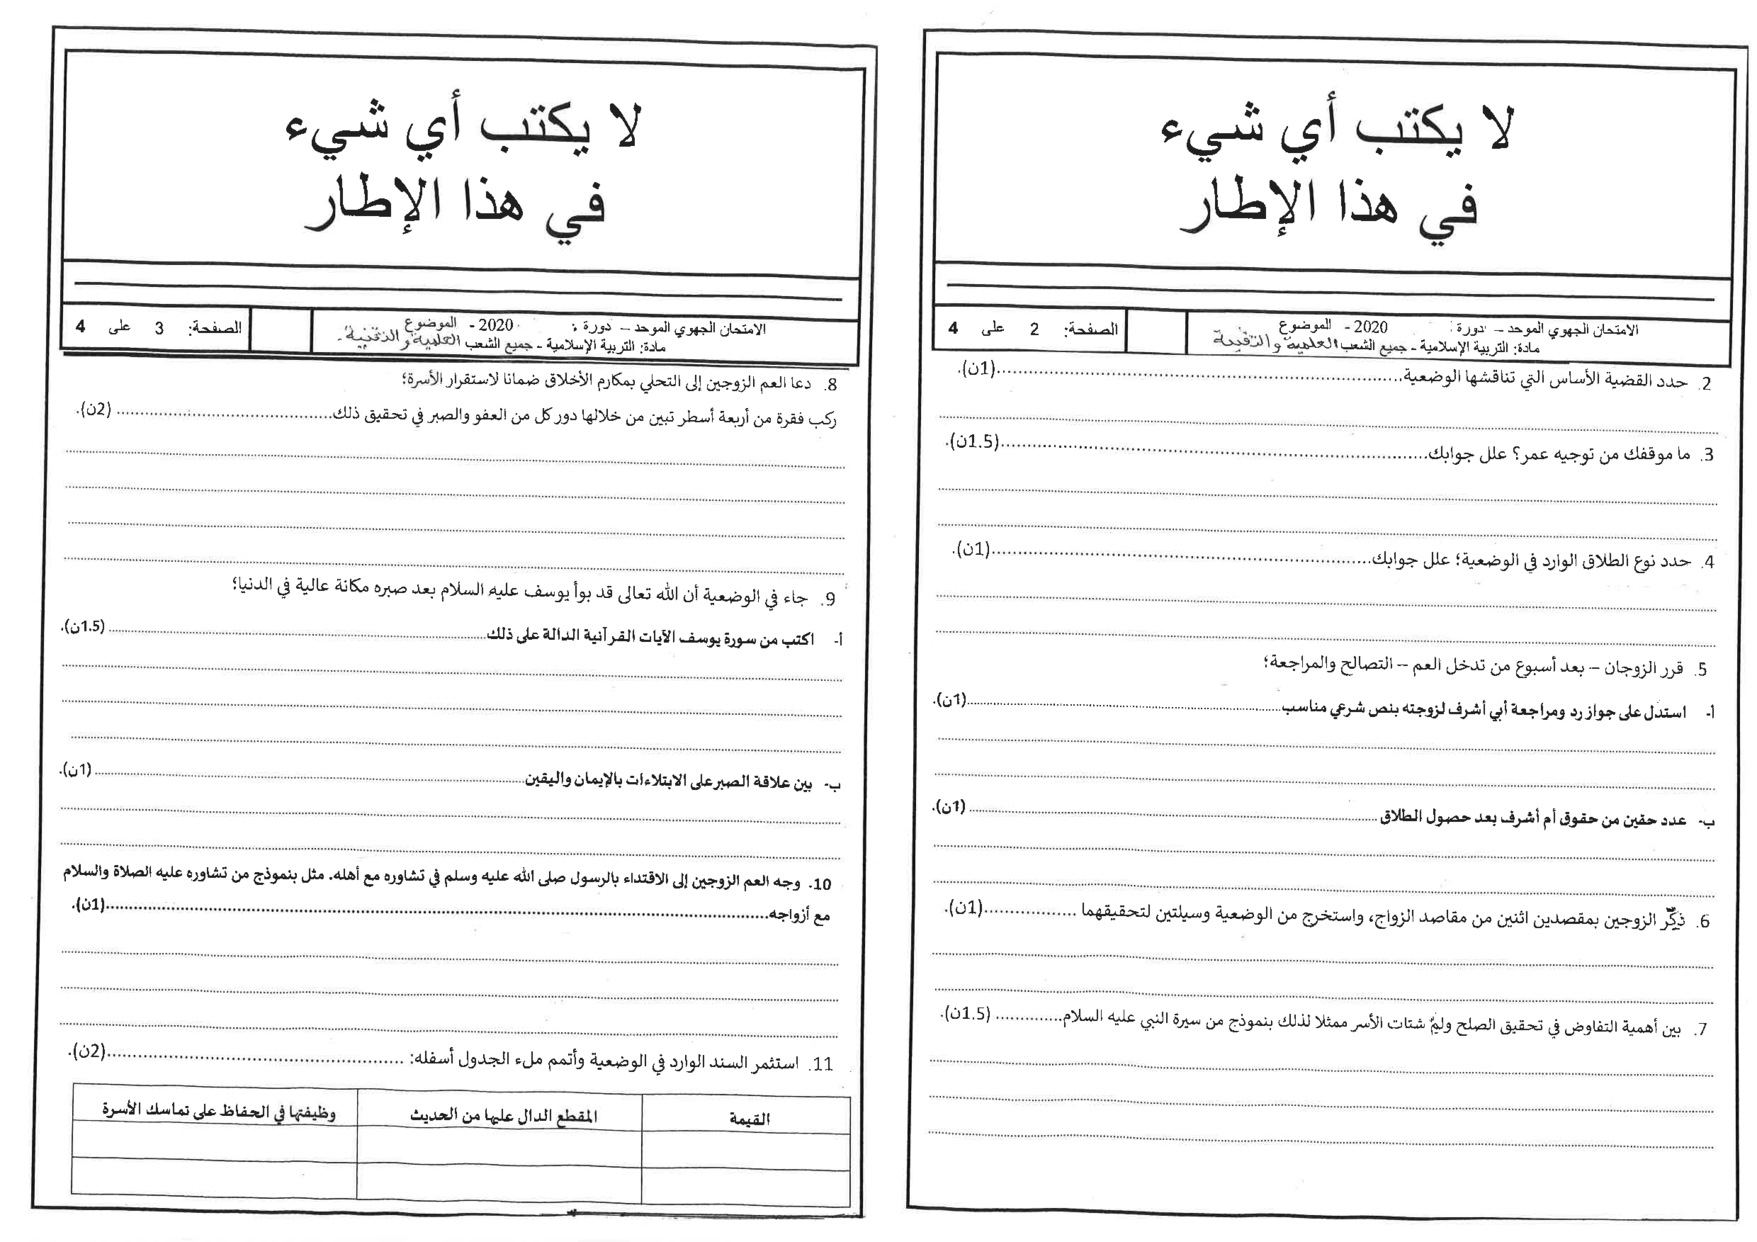 لا يكتب أي شيء
في هذا الإطار
الامتحان الجهوي الموحد – دورة : 2020 - الموضوع
مادة: التربية الإسلامية - جميع الشعب العلمية والتقنية
الصفحة: 2 على 4
2. حدد القضية الأساس التي تناقشها الوضعية..............(1ن).
3. ما موقفك من توجيه عمر؟ علل جوابك..............(1.5ن).
4. حدد نوع الطلاق الوارد في الوضعية؛ علل جوابك..............(1ن).
5. قرر الزوجان – بعد أسبوع من تدخل العم – التصالح والمراجعة؛
أ- استدل على جواز رد ومراجعة أبي أشرف لزوجته بنص شرعي مناسب..............(1ن).
ب- عدد حقين من حقوق أم أشرف بعد حصول الطلاق..............(1ن).
6. ذكّر الزوجين بمقصدين اثنين من مقاصد الزواج، واستخرج من الوضعية وسيلتين لتحقيقهما..............(1ن).
7. بين أهمية التفاوض في تحقيق الصلح ولمّ شتات الأسر ممثلا لذلك بنموذج من سيرة النبي عليه السلام..............(1.5ن).
لا يكتب أي شيء
في هذا الإطار
الامتحان الجهوي الموحد – دورة : 2020 - الموضوع
مادة: التربية الإسلامية - جميع الشعب العلمية والتقنية-
الصفحة: 3 على 4
8. دعا العم الزوجين إلى التحلي بمكارم الأخلاق ضمانا لاستقرار الأسرة؛
ركب فقرة من أربعة أسطر تبين من خلالها دور كل من العفو والصبر في تحقيق ذلك..............(2ن).
9. جاء في الوضعية أن الله تعالى قد بوأ يوسف عليه السلام بعد صبره مكانة عالية في الدنيا؛
أ- اكتب من سورة يوسف الآيات القرآنية الدالة على ذلك..............(1.5ن).
ب- بين علاقة الصبر على الابتلاءات بالإيمان واليقين..............(1ن).
10. وجه العم الزوجين إلى الاقتداء بالرسول صلى الله عليه وسلم في تشاوره مع أهله. مثل بنموذج من تشاوره عليه الصلاة والسلام
مع أزواجه..............(1ن).
11. استثمر السند الوارد في الوضعية وأتمم ملء الجدول أسفله: ..............(2ن).
القيمة المقطع الدال عليها من الحديث وظيفتها في الحفاظ على تماسك الأسرة